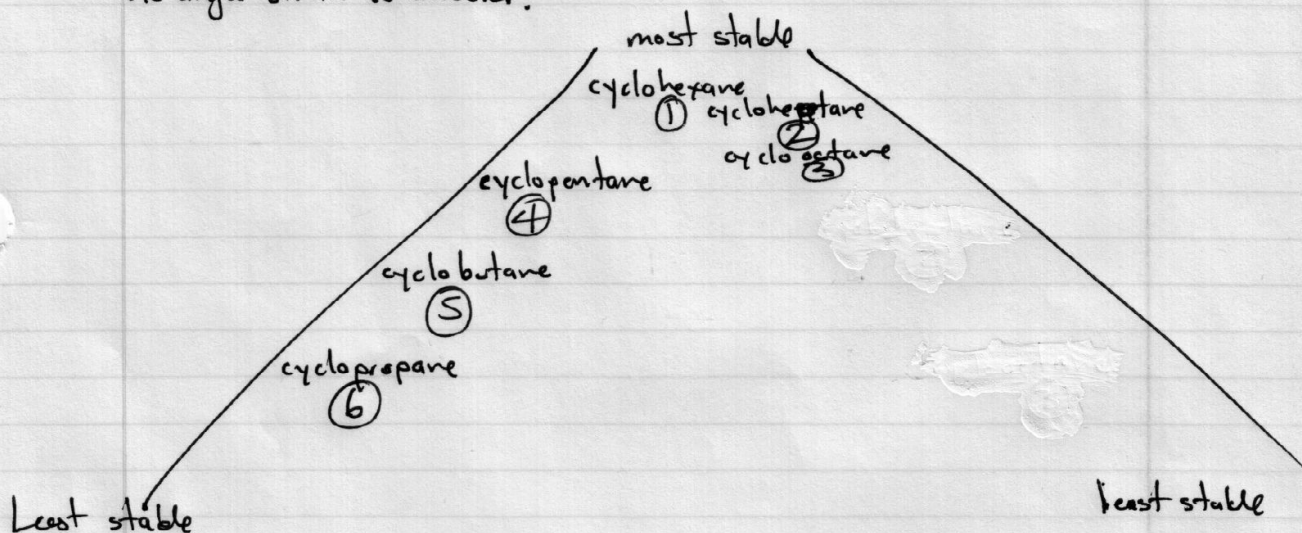 no angle strain to consider.
most stable
cyclohexane
① cycloheptane
②
cyclooctane
③
cyclopentane
④
cyclobutane
⑤
cyclopropane
⑥
Least stable
least stable